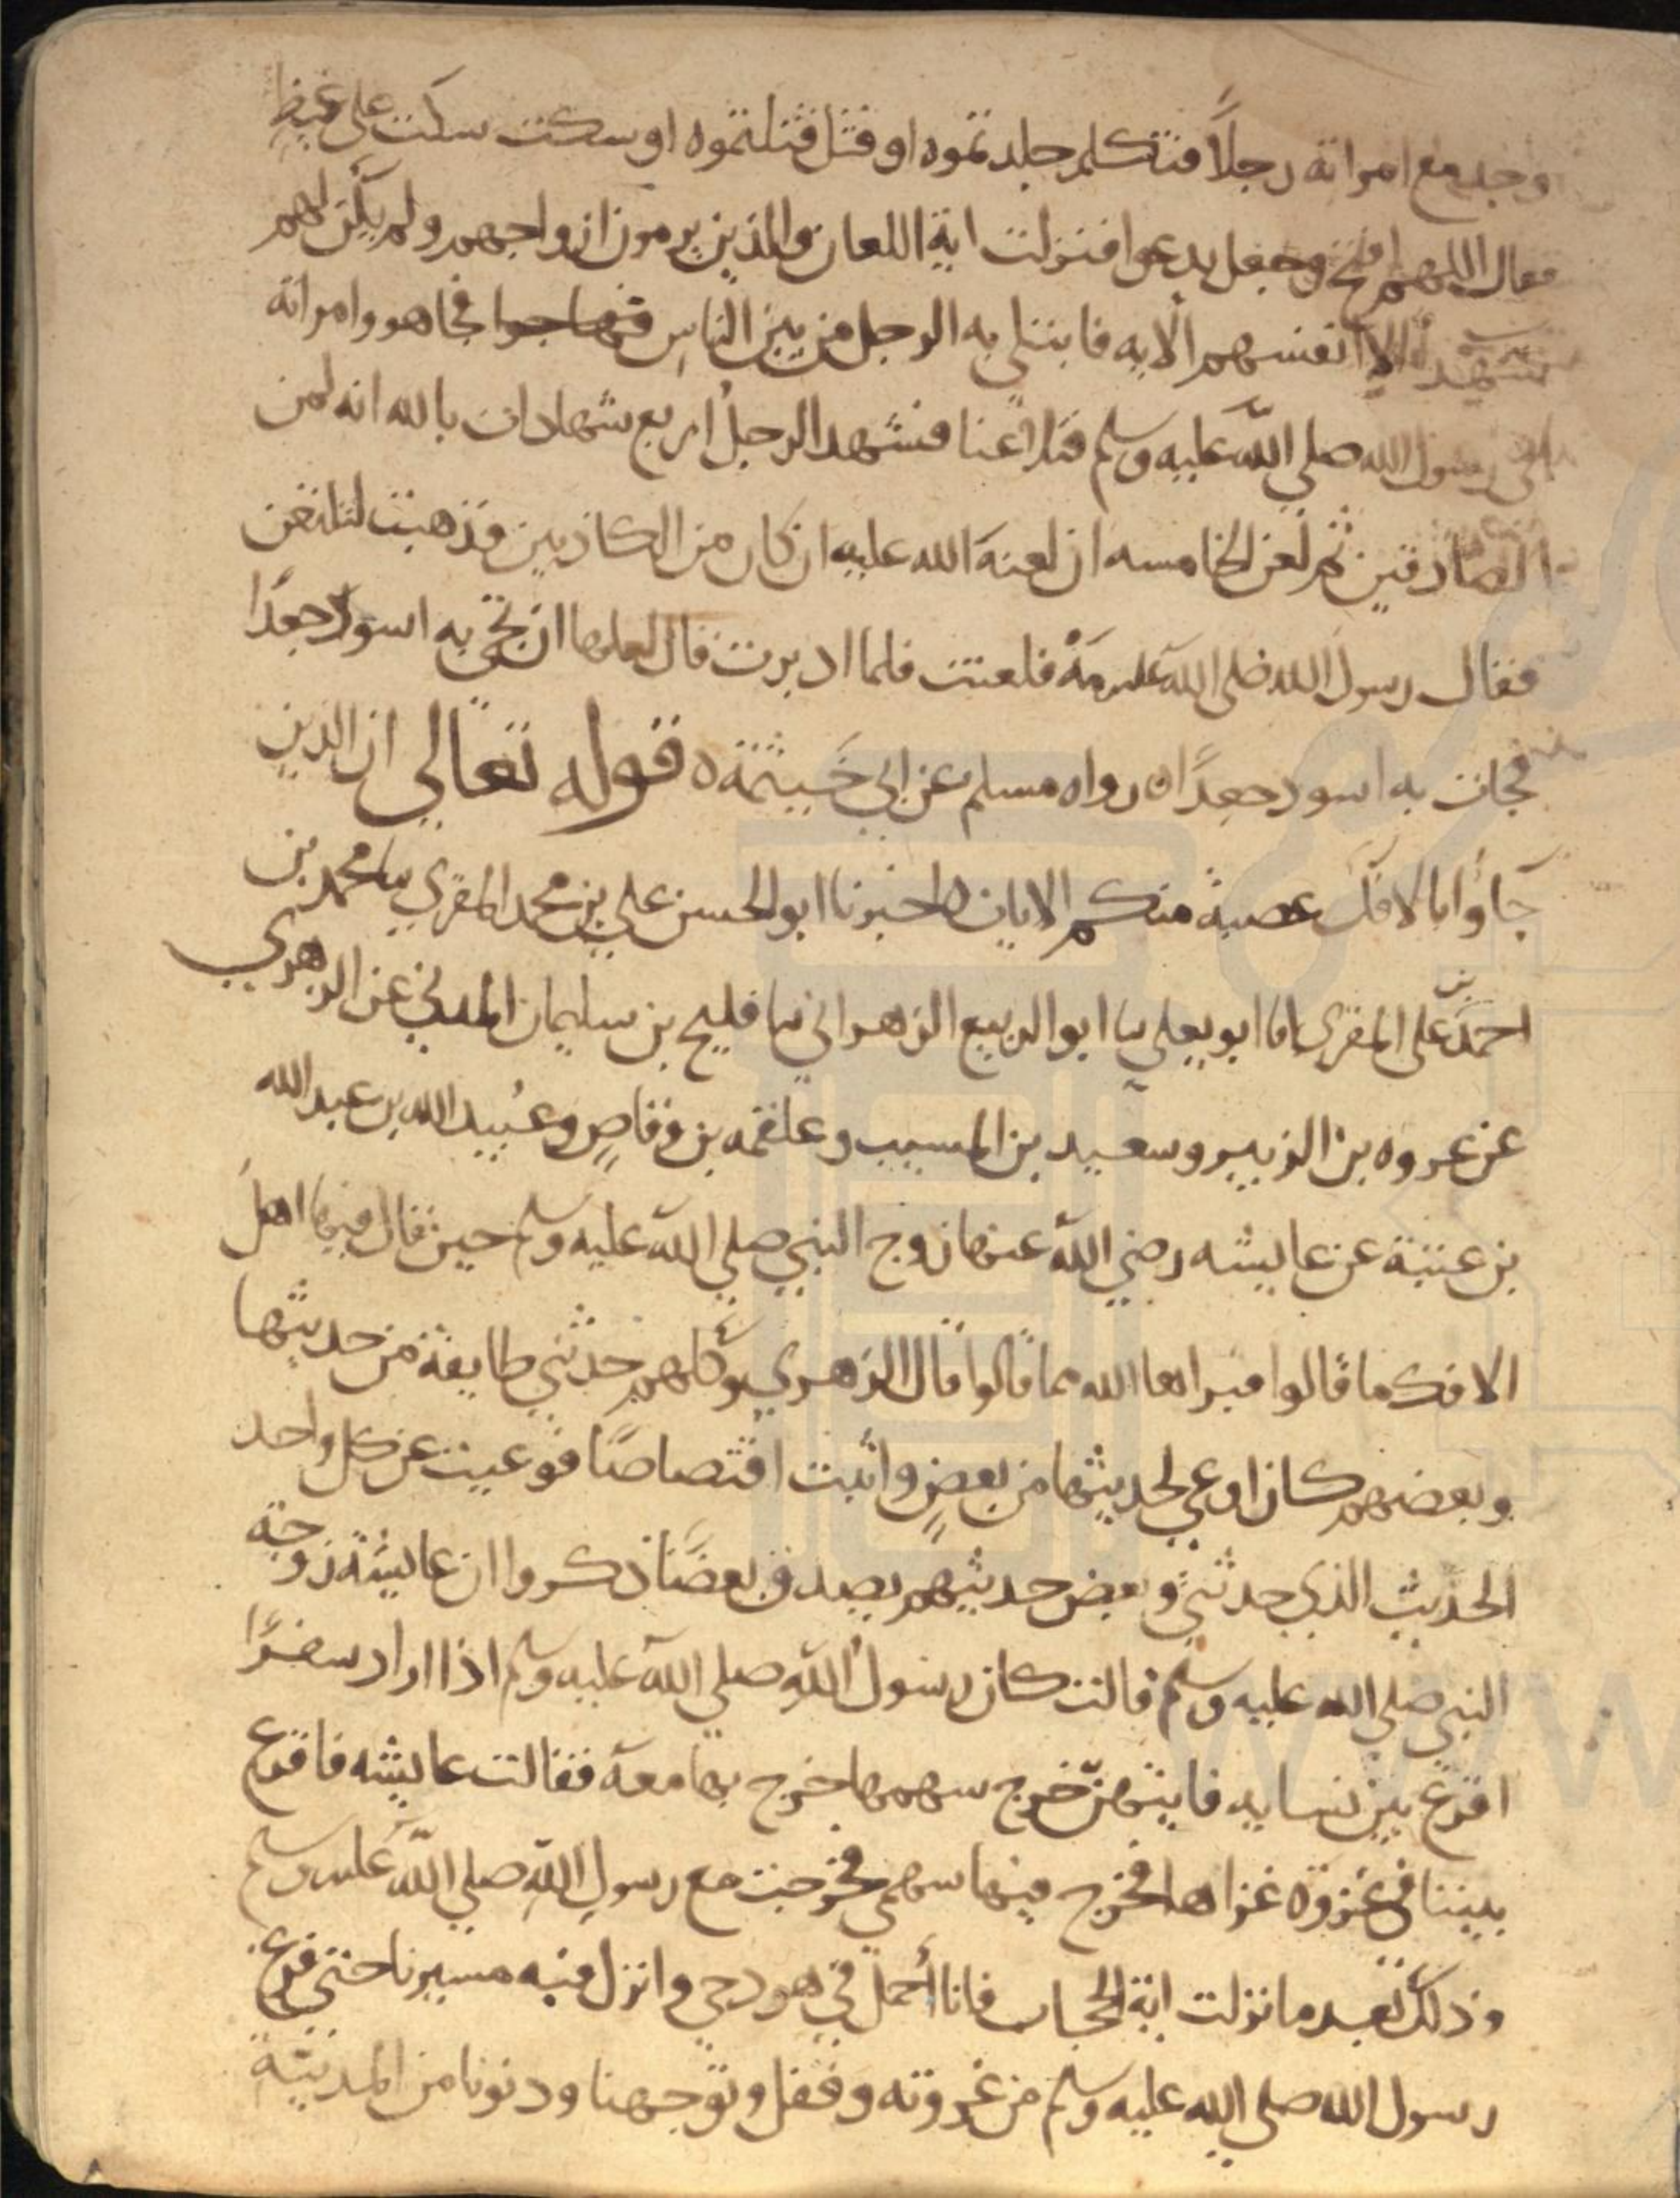 وجد مع امراته رجلًا فتكلم جلدتموه او قتل قتلتموه او سكت سكت على غيظ
فقال اللهم افتح وجعل يدعوا فنزلت اية اللعان والذين يرمون ازواجهم ولم يكن لهم
شهدا الا انفسهم الايه فابتلي به الرجل من بين الناس فجا هو وامراته
الى رسول الله صلي الله عليه وسلم فتلاعنا فشهد الرجل اربع شهادات بالله انه لمن
الصادقين ثم لعن الخامسه ان لعنة الله عليه ان كان من الكاذبين فذهبت لتلتعن
فقال رسول الله صلى الله عليه مَهْ فلعنت فلما ادبرت قال لعلها ان تجي به اسود جعدًا
فجات به اسود جعدًا ه رواه مسلم عن ابي خَيثمة ه قوله تعالى ان الذين
جاؤا بالافك عصبة منكم الايات ه اخبرنا ابو الحسن علي بن محمد المقري نا محمد بن
احمد بن على المقرى انا ابو يعلي نا ابو الربيع الزهراني نا فليح بن سليمان المدني عن الزهري
عن عروه بن الزبير وسعيد بن المسيب وعلقمه بن وقاصٍ وعُبيد الله بن عبد الله
بن عتبة عن عايشه رضي الله عنها زوج النبي صلي الله عليه وسلم حين قال فيها اهل
الافك ما قالوا فبراها الله مما قالوا قال الزهري وكلهم حدثني طايفة من حديثها
وبعضهم كان اوعي لحديثها من بعضٍ واثبت اقتصاصًا فوعيت عن كل واحد
الحديث الذي حدثني وبعض حديثهم يصدق بعضًا ذكروا ان عايشة زوجة
النبي صلي الله عليه وسلم قالت كان رسول الله صلي الله عليه وسلم اذا اراد سفرًا
اقرع بين نسايه فايتهنّ خرج سهمها خرج بها معه فقالت عايشه فاقرع
بيننا في غزوة غزاها فخرج فيها سهمي فخرجت مع رسول الله صلي الله عليه وسلم
وذلك بعد ما نزلت اية الحجاب فانا أُحمل في هودجي وانزل فيه مسيرنا حتى فرغ
رسول الله صلي الله عليه وسلم من غزوته وقفل وتوجهنا ودنونا من المدينة